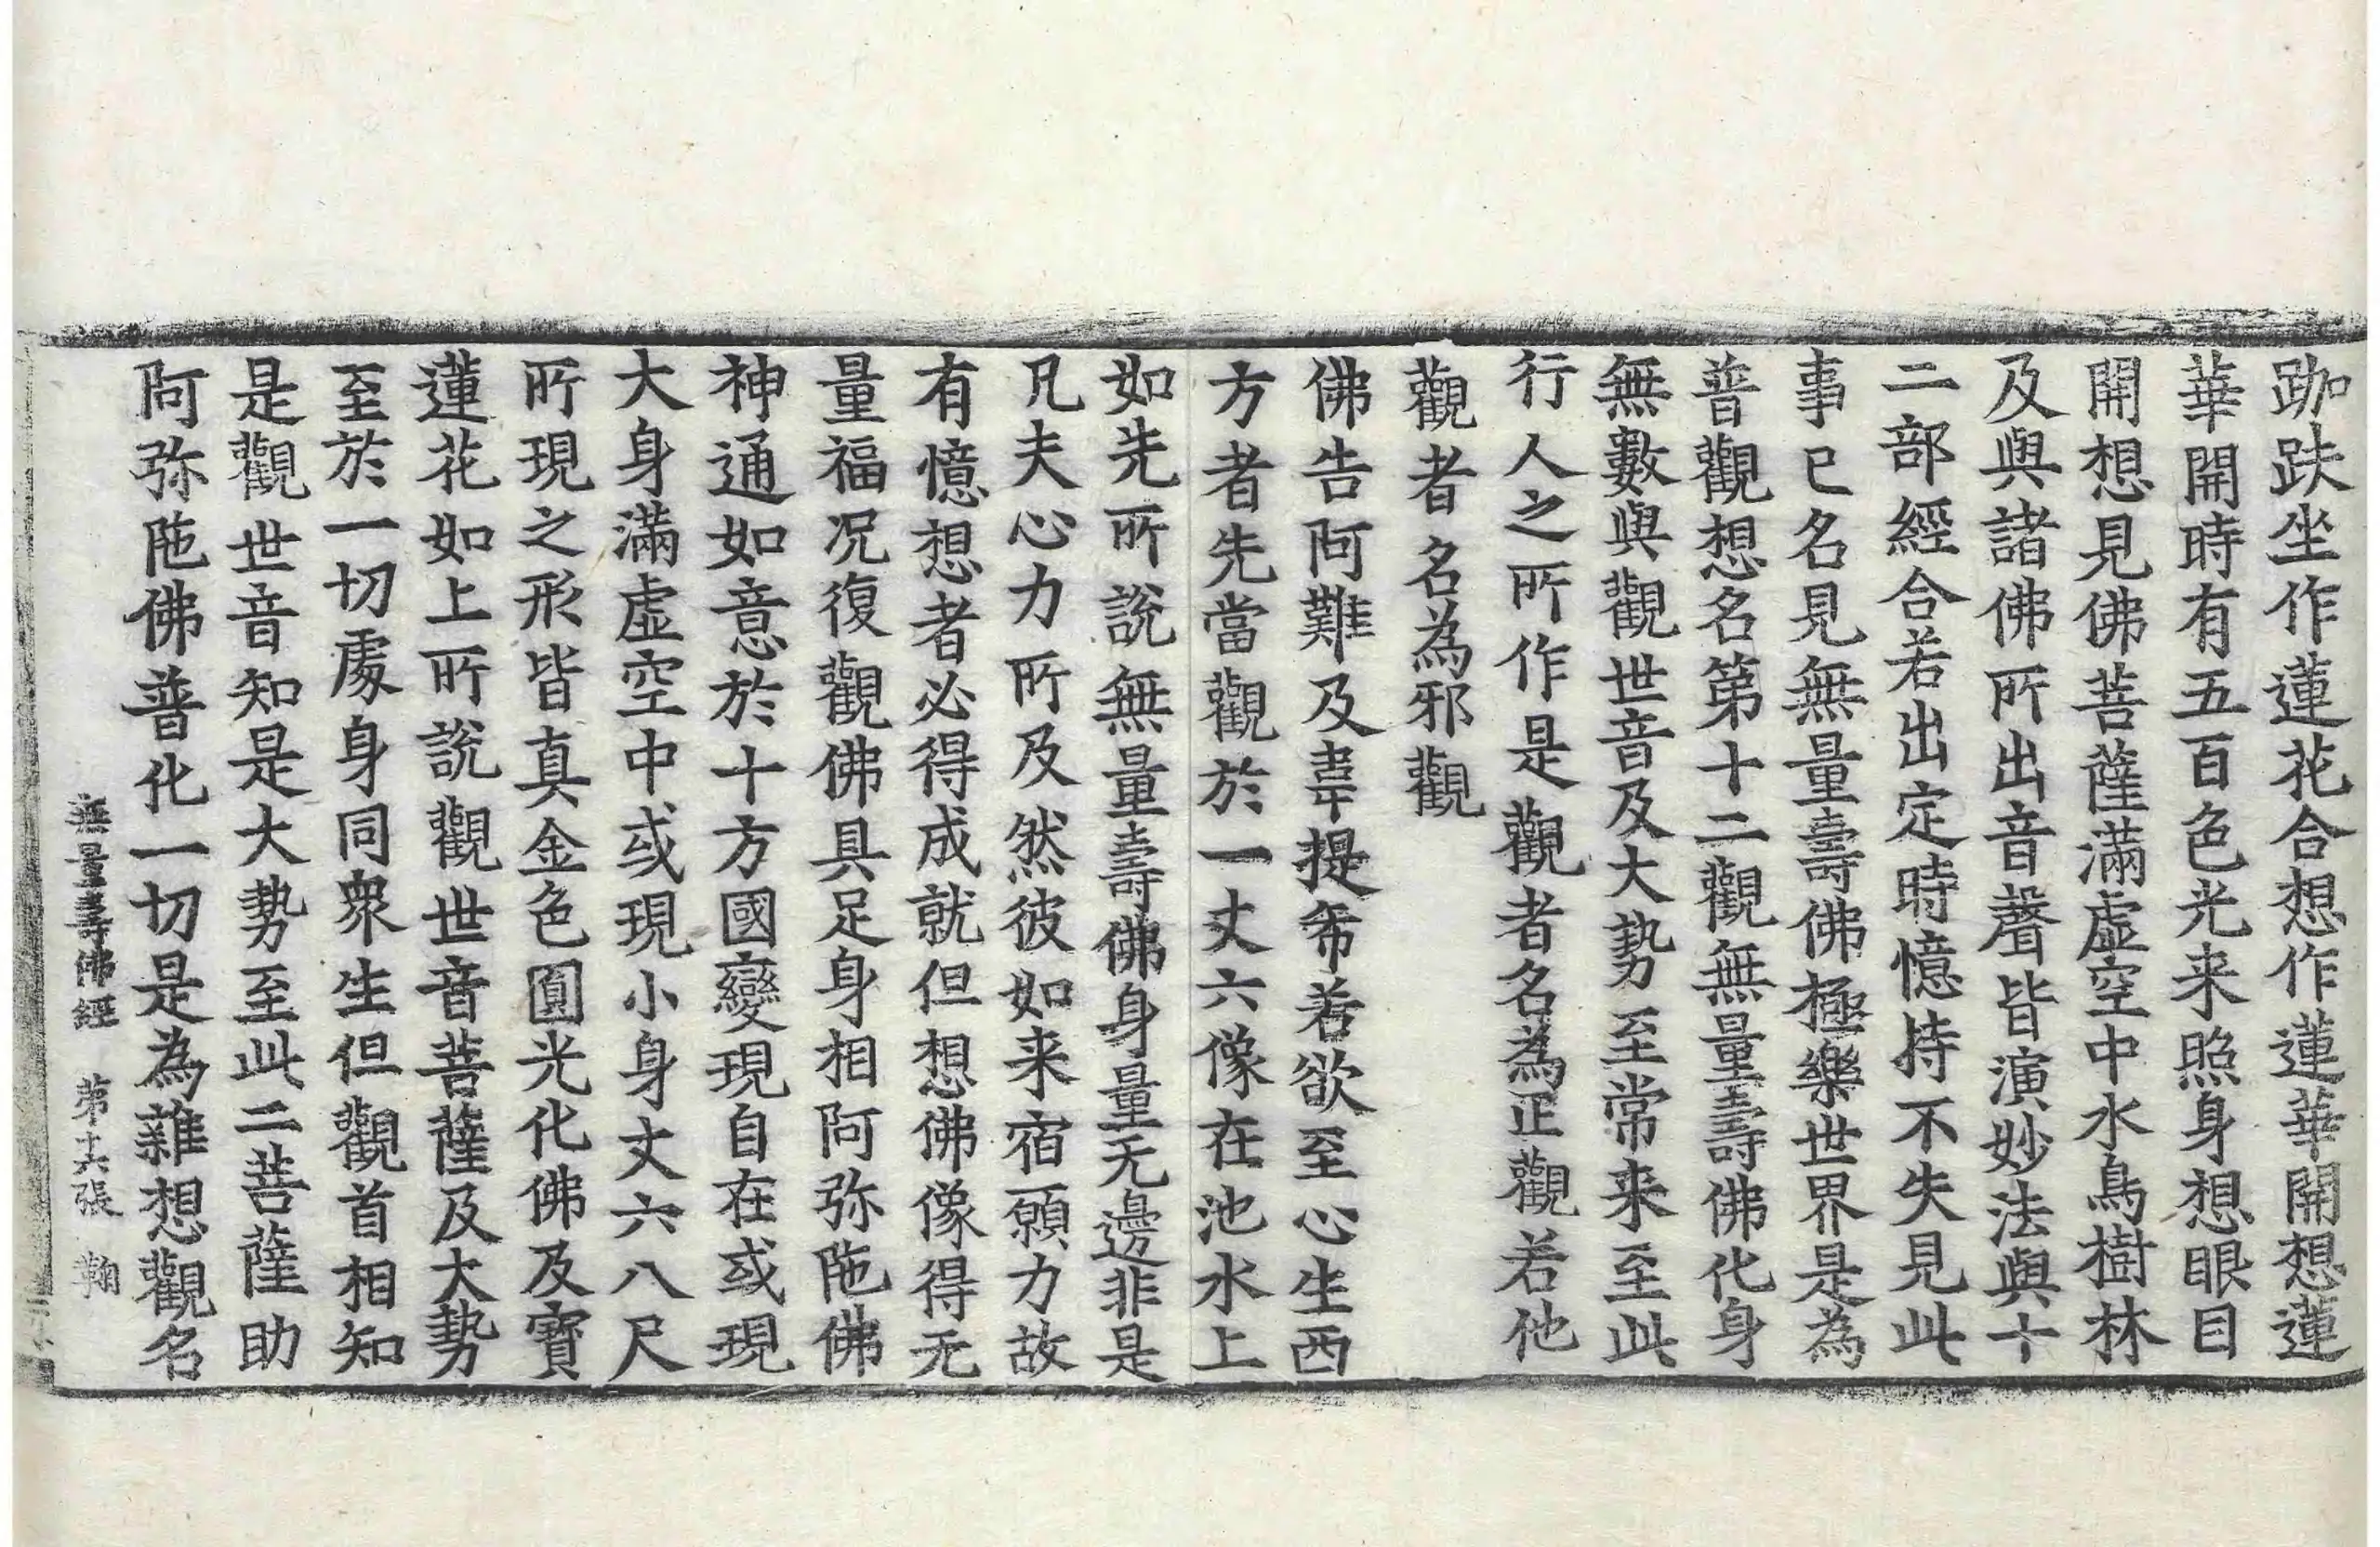 跏趺坐作蓮花合想作蓮華開想蓮
華開時有五百色光来照身想眼目
開想見佛菩薩滿虛空中水鳥樹林
及與諸佛所出音聲皆演妙法與十
二部經合若出定時憶持不失見此
事已名見無量壽佛極樂世界是為
普觀想名第十二觀無量壽佛化身
無數與觀世音及大勢至常来至此
行人之所作是觀者名為正觀若他
觀者名為邪觀
佛告阿難及韋提希若欲至心生西
方者先當觀於一丈六像在池水上
如先所說無量壽佛身量无邊非是
凡夫心力所及然彼如来宿願力故
有憶想者必得成就但想佛像得无
量福況復觀佛具足身相阿弥陁佛
神通如意於十方國變現自在或現
大身滿虛空中或現小身丈六八尺
所現之形皆真金色圓光化佛及寶
蓮花如上所說觀世音菩薩及大勢
至於一切處身同衆生但觀首相知
是觀世音知是大勢至此二菩薩助
阿弥陁佛普化一切是為雜想觀名
無量壽佛經 第十六張 翰